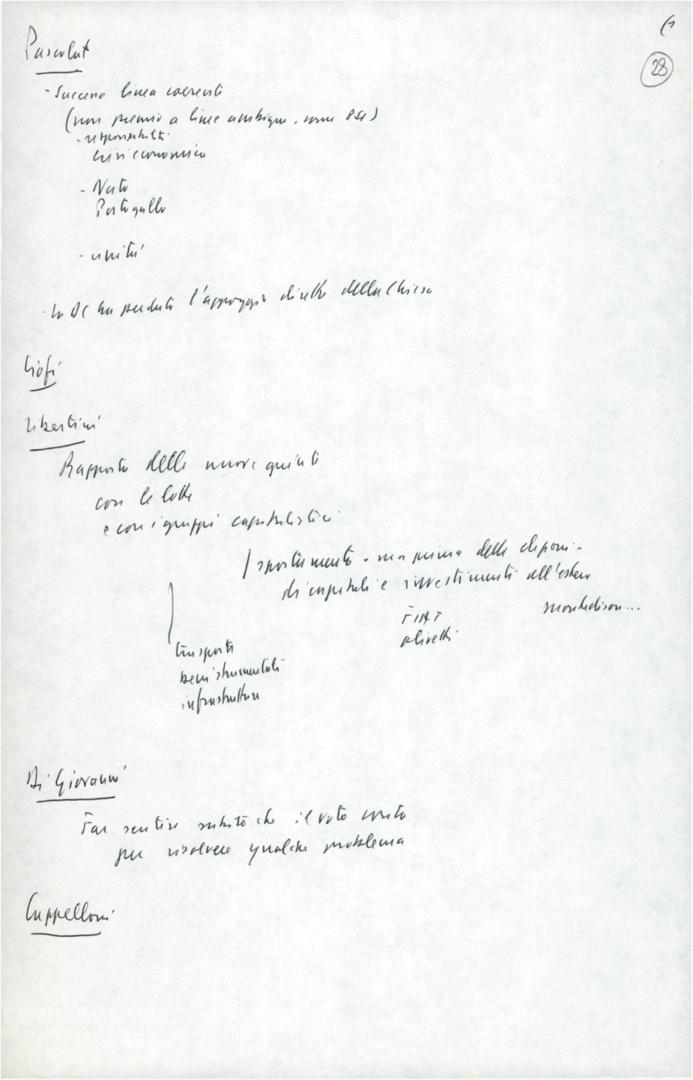 28
Pascolat
- Successo linea coerenti
(non premio a linee ambigue. come PSI)
- responsabilità
crisi economica
- Nato
Portogallo
- unità
- La DC ha perduto l'appoggio diretto della Chiesa
Libertini
Rapporto delle nuove giunte
con le lotte
e con i gruppi capitalistici
spostamento - ma prima delle
di capitali e investimenti all'estero
FIAT Montedison...
Olivetti
trasporti
beni strumentali
infrastrutture
Di Giovanni
Far sentire subito che il voto conta
per risolvere qualche problema
Cappelloni